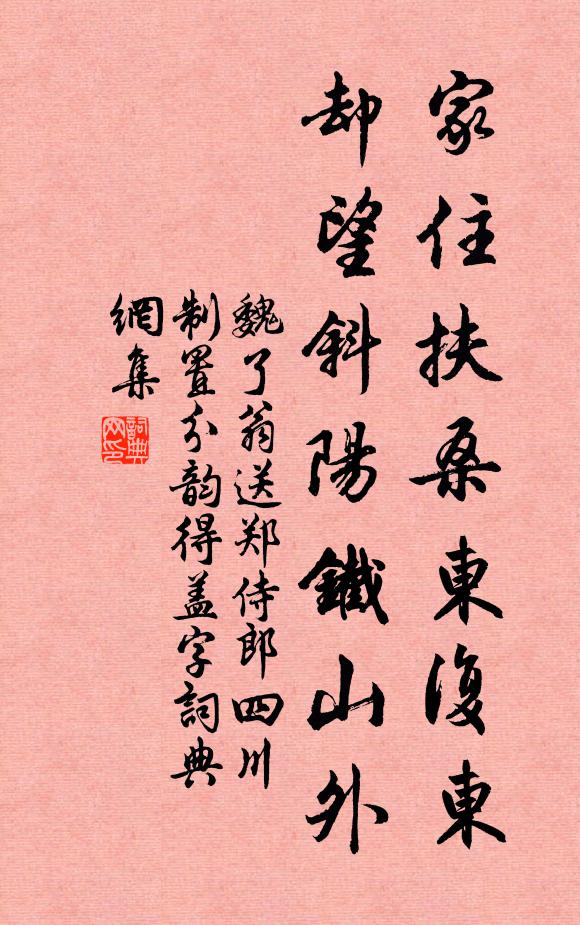 家住扶桑東復東
却望斜陽鐵山外
魏了翁送郑侍郎四川
制置分韵得蓋字詞典
網集
詞典网印